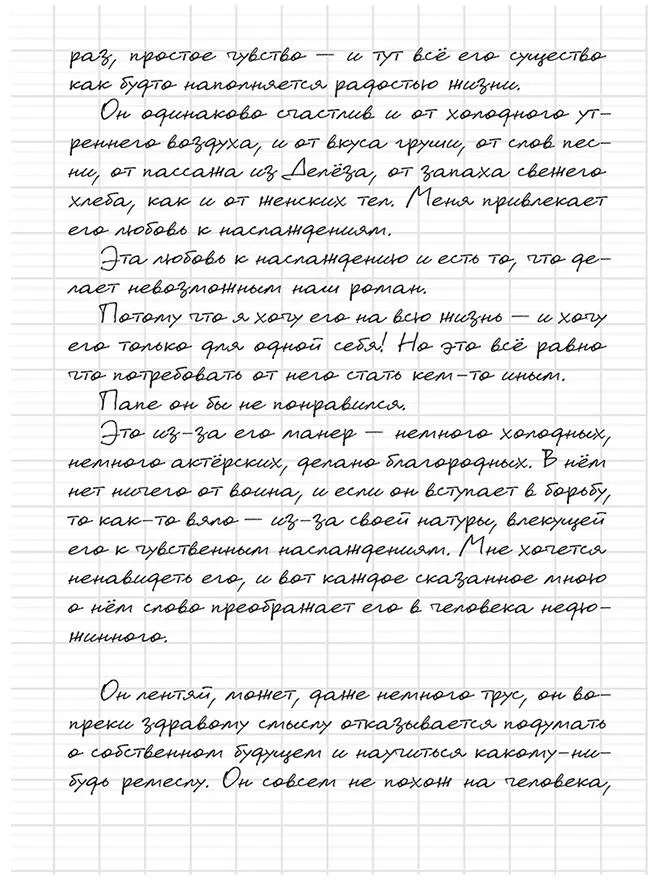 раз, простое чувство — и тут всё его существо
как будто наполняется радостью жизни.
Он одинаково счастлив и от холодного ут-
реннего воздуха, и от вкуса груши, от слов пес-
ни, от пассажа из Делёза, от запаха свежего
хлеба, как и от женских тел. Меня привлекает
его любовь к наслаждениям.
Эта любовь к наслаждению и есть то, что де-
лает невозможным наш роман.
Потому что я хочу его на всю жизнь — и хочу
его только для одной себя! Но это всё равно
что потребовать от него стать кем-то иным.
Папе он бы не понравился.
Это из-за его манер — немного холодных,
немного актёрских, делано благородных. В нём
нет ничего от воина, и если он вступает в борьбу,
то как-то вяло — из-за своей натуры, влекущей
его к чувственным наслаждениям. Мне хочется
ненавидеть его, и вот каждое сказанное мною
о нём слово преображает его в человека недю-
жинного.
Он лентяй, может, даже немного трус, он во-
преки здравому смыслу отказывается подумать
о собственном будущем и научиться какому-ни-
будь ремеслу. Он совсем не похож на человека,